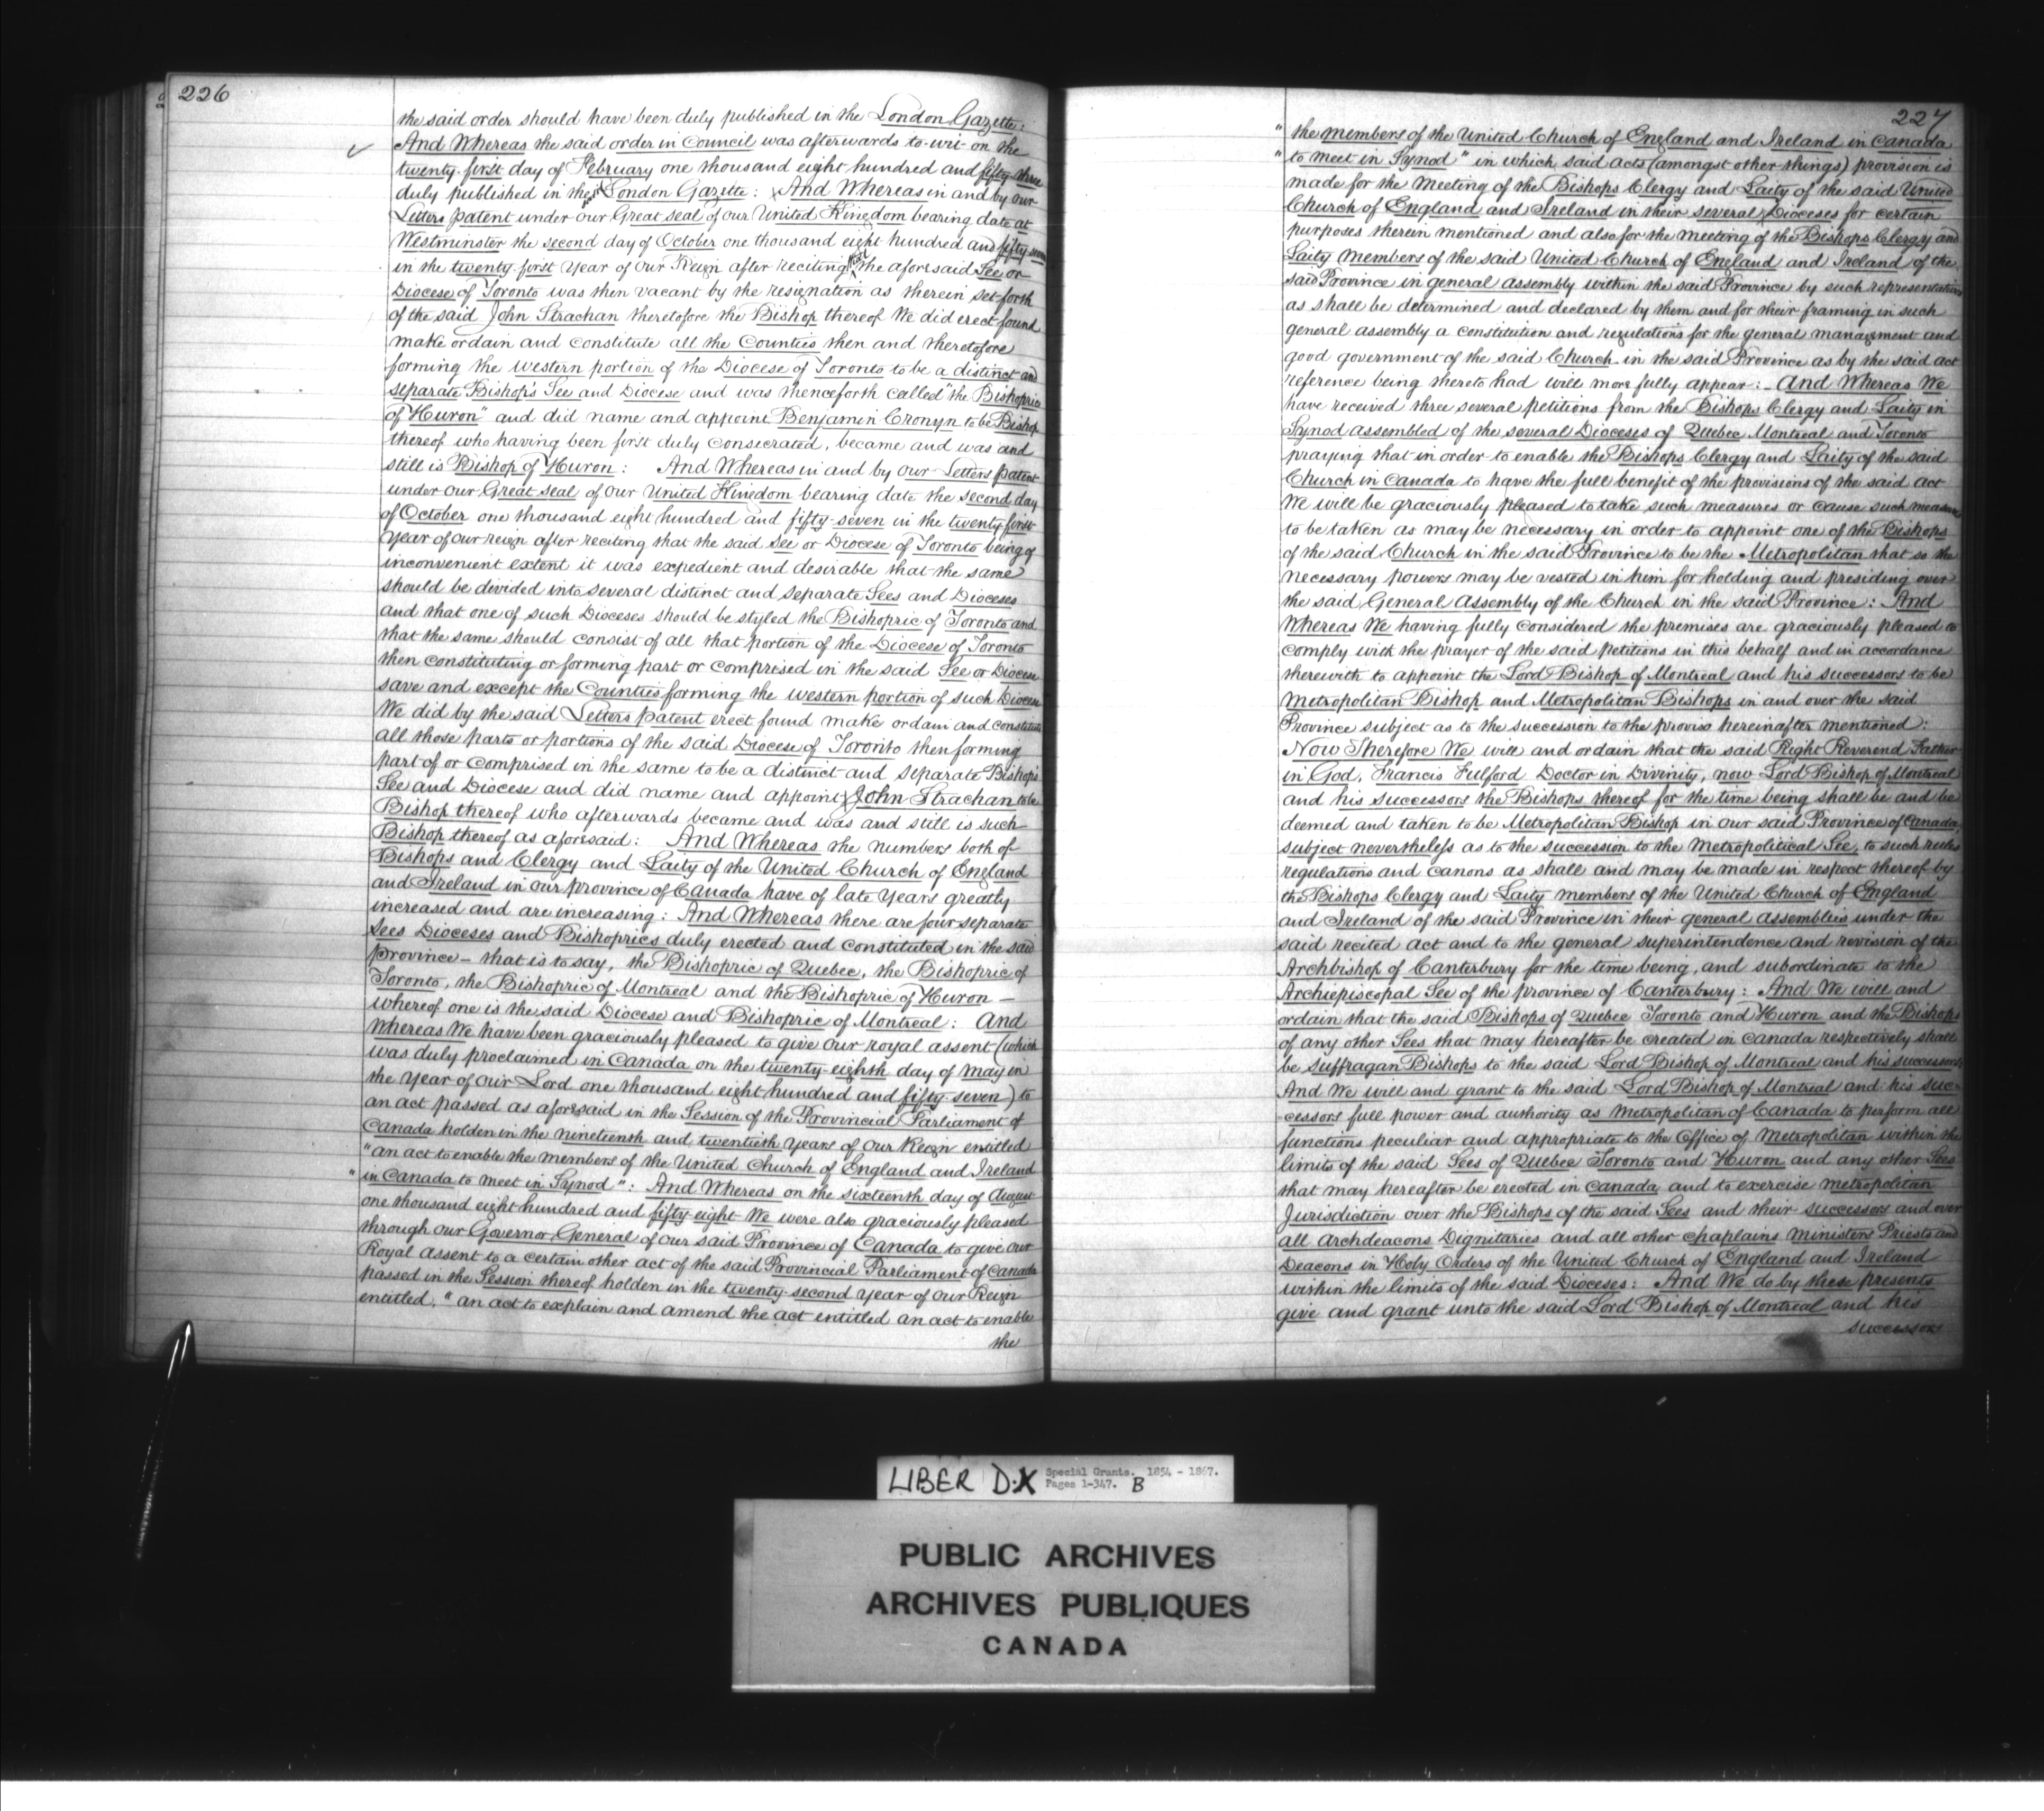 226
the said order should have been duly published in the London Gazette:
And Whereas the said order in Council was afterwards to-wit on the
twenty-first day of February one thousand eight hundred and fifty-three
duly published in the London Gazette: And Whereas in and by our
Letters patent under our Great seal of our United Kingdom bearing date at
Westminster the second day of October one thousand eight hundred and fifty seven
in the twenty-first Year of our Reign after reciting that the aforesaid See or
Diocese of Toronto was then vacant by the resignation as therein set-forth
of the said John Strachan theretofore the Bishop thereof We did erect found
make ordain and constitute all the Counties then and theretofore
forming the western portion of the Diocese of Toronto to be a distinct and
separate Bishop's See and Diocese and was thenceforth called "the Bishopric
of Huron" and did name and appoint Benjamin Cronyn to be Bishop
thereof who having been first duly consecrated, became and was and
still is Bishop of Huron: And Whereas in and by our Letters patent
under our Great seal of our United Kingdom bearing date the second day
of October one thousand eight hundred and fifty-seven in the twenty-first
Year of our reign after reciting that the said See or Diocese of Toronto being of
inconvenient extent it was expedient and desirable that the same
should be divided into several distinct and separate Sees and Dioceses
and that one of such Dioceses should be styled the Bishopric of Toronto and
that the same should consist of all that portion of the Diocese of Toronto
then constituting or forming part or comprised in the said See or Diocese
save and except the Counties forming the western portion of such Diocese
We did by the said Letters patent erect found make ordain and constitute
all those parts or portions of the said Diocese of Toronto then forming
part of or comprised in the same to be a distinct and separate Bishop's
See and Diocese and did name and appoint John Strachan to be
Bishop thereof who afterwards became and was and still is such
Bishop thereof as aforesaid: And Whereas the numbers both of
Bishops and Clergy and Laity of the United Church of England
and Ireland in our province of Canada have of late Years greatly
increased and are increasing: And Whereas there are four separate
Sees Dioceses and Bishoprics duly erected and constituted in the said
province - that is to say, the Bishopric of Quebec, the Bishopric of
Toronto, the Bishopric of Montreal and the Bishopric of Huron -
whereof one is the said Diocese and Bishopric of Montreal: And
Whereas We have been graciously pleased to give our royal assent (which
was duly proclaimed in Canada on the twenty-eighth day of May in
the Year of our Lord one thousand eight hundred and fifty-seven) to
an act passed as aforesaid in the Session of the Provincial Parliament of
Canada holden in the nineteenth and twentieth Years of our Reign entitled
"an act to enable the members of the United Church of England and Ireland
"in Canada to meet in Synod": And Whereas on the sixteenth day of August
one thousand eight hundred and fifty-eight We were also graciously pleased
through our Governor General of our said Province of Canada to give our
Royal assent to a certain other act of the said Provincial Parliament of Canada
passed in the Session thereof holden in the twenty-second Year of our Reign
entitled, "an act to explain and amend the act entitled an act to enable
the
227
"the members of the United Church of England and Ireland in Canada
"to meet in Synod" in which said acts (amongst other things) provision is
made for the Meeting of the Bishops Clergy and Laity of the said United
Church of England and Ireland in their several Dioceses for certain
purposes therein mentioned and also for the meeting of the Bishops Clergy and
Laity members of the said United Church of England and Ireland of the
said Province in general assembly within the said Province by such representatives
as shall be determined and declared by them and for their framing in such
general assembly a constitution and regulations for the general management and
good government of the said Church in the said Province as by the said act
reference being thereto had will more fully appear: - And Whereas We
have received three several petitions from the Bishops Clergy and Laity in
Synod assembled of the several Dioceses of Quebec Montreal and Toronto
praying that in order to enable the Bishops Clergy and Laity of the said
Church in Canada to have the full benefit of the provisions of the said act
We will be graciously pleased to take such measures or cause such measures
to be taken as may be necessary in order to appoint one of the Bishops
of the said Church in the said Province to be the Metropolitan that so the
necessary powers may be vested in him for holding and presiding over
the said General Assembly of the Church in the said Province: And
Whereas We having fully considered the premises are graciously pleased to
comply with the prayer of the said petitions in this behalf and in accordance
therewith to appoint the Lord Bishop of Montreal and his successors to be
Metropolitan Bishop and Metropolitan Bishops in and over the said
Province subject as to the succession to the proviso hereinafter mentioned:
Now Therefore We will and ordain that the said Right Reverend Father
in God, Francis Fulford Doctor in Divinity, now Lord Bishop of Montreal
and his successors the Bishops thereof for the time being shall be and be
deemed and taken to be Metropolitan Bishop in our said Province of Canada,
subject nevertheless as to the succession to the Metropolitical See, to such rules
regulations and canons as shall and may be made in respect thereof by
the Bishops Clergy and Laity members of the United Church of England
and Ireland of the said Province in their general assemblies under the
said recited act and to the general superintendence and revision of the
Archbishop of Canterbury for the time being, and subordinate to the
Archiepiscopal See of the province of Canterbury: And We will and
ordain that the said Bishops of Quebec Toronto and Huron and the Bishops
of any other Sees that may hereafter be created in Canada respectively shall
be suffragan Bishops to the said Lord Bishop of Montreal and his successors
And We will and grant to the said Lord Bishop of Montreal and his suc-
cessors full power and authority as Metropolitan of Canada to perform all
functions peculiar and appropriate to the Office of Metropolitan within the
limits of the said Sees of Quebec Toronto and Huron and any other Sees
that may hereafter be erected in Canada and to exercise metropolitan
Jurisdiction over the Bishops of the said Sees and their successors and over
all archdeacons Dignitaries and all other chaplains ministers Priests and
Deacons in Holy Orders of the United Church of England and Ireland
within the limits of the said Dioceses: And We do by these presents
give and grant unto the said Lord Bishop of Montreal and his
successors
LIBER D.X Special Grants. 1854 - 1867.
Pages 1-347. B
PUBLIC ARCHIVES
ARCHIVES PUBLIQUES
CANADA